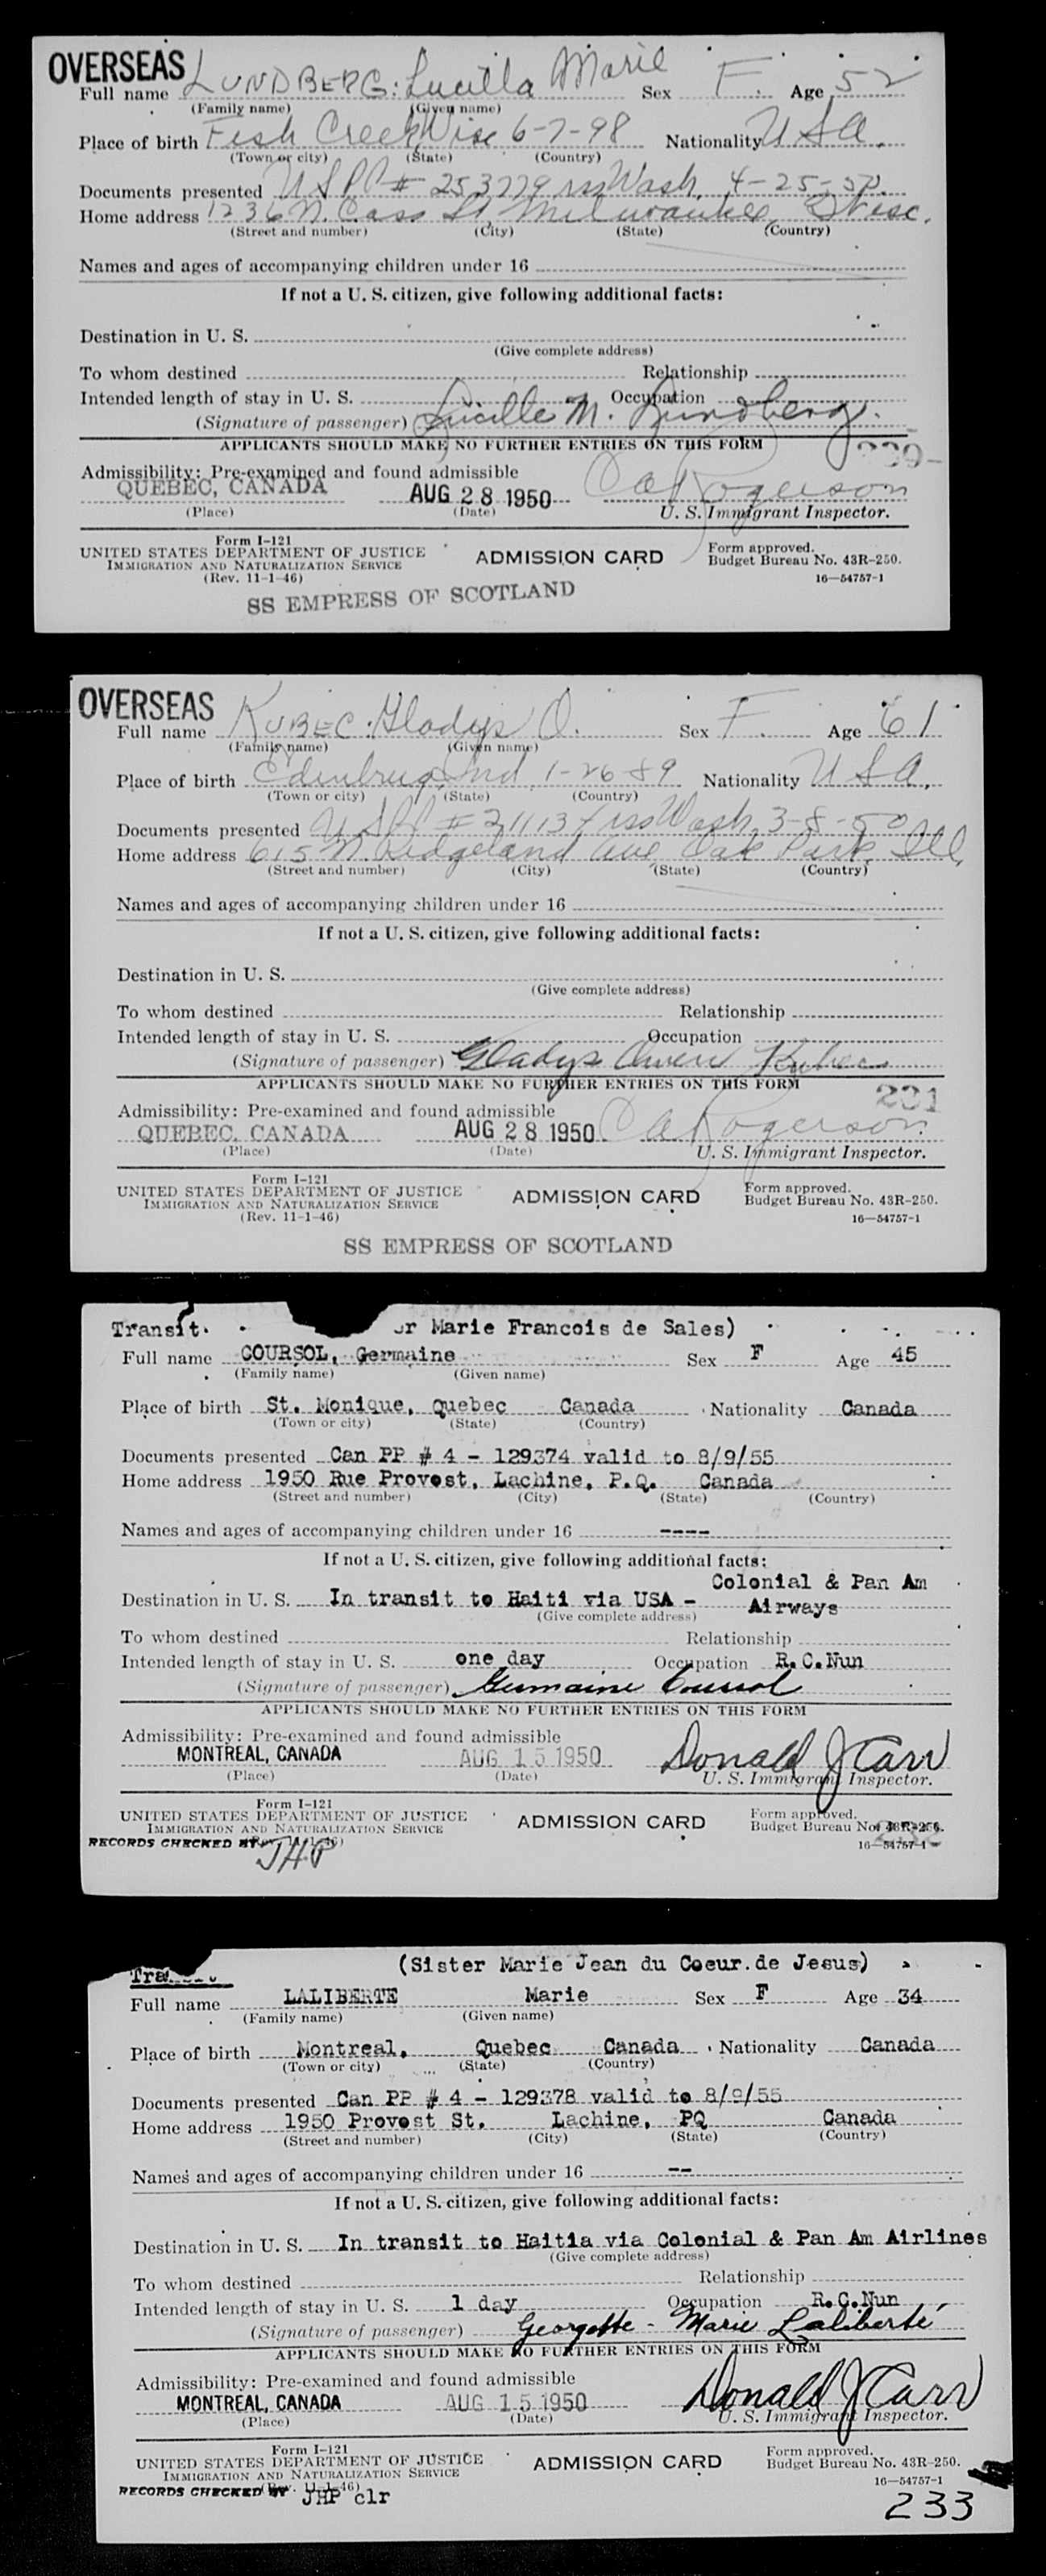 OVERSEAS
Full name LUNDBERG: Lucilla Marie Sex F. Age 52
(Family name) (Given name)
Place of birth Fish Creek Wisc 6-7-98 Nationality USA.
(Town or city) (State) (Country)
Documents presented USPP # 253779 iss Wash. 4-25-50.
Home address 1236 N. Cass St Milwaukee, Wisc.
(Street and number) (City) (State) (Country)
Names and ages of accompanying children under 16
If not a U. S. citizen, give following additional facts:
Destination in U. S.
(Give complete address)
To whom destined Relationship
Intended length of stay in U. S. Occupation
(Signature of passenger) Lucille M. Lundberg.
APPLICANTS SHOULD MAKE NO FURTHER ENTRIES ON THIS FORM
Admissibility: Pre-examined and found admissible
QUEBEC, CANADA AUG 28 1950 CA Rogerson
(Place) (Date) U. S. Immigrant Inspector.
Form I-121
UNITED STATES DEPARTMENT OF JUSTICE
IMMIGRATION AND NATURALIZATION SERVICE
(Rev. 11-1-46)
ADMISSION CARD
Form approved.
Budget Bureau No. 43R-250.
16—54757-1
SS EMPRESS OF SCOTLAND
OVERSEAS
Full name KUBEC: Gladys O. Sex F. Age 61
(Family name) (Given name)
Place of birth Edinburg, Ind. 1-26-89 Nationality USA.
(Town or city) (State) (Country)
Documents presented USPP # 211137 iss Wash. 3-8-50
Home address 615 N Ridgeland Ave Oak Park, Ill.
(Street and number) (City) (State) (Country)
Names and ages of accompanying children under 16
If not a U. S. citizen, give following additional facts:
Destination in U. S.
(Give complete address)
To whom destined Relationship
Intended length of stay in U. S. Occupation
(Signature of passenger) Gladys Owen Kubec
APPLICANTS SHOULD MAKE NO FURTHER ENTRIES ON THIS FORM
231
Admissibility: Pre-examined and found admissible
QUEBEC, CANADA AUG 28 1950 CA Rogerson
(Place) (Date) U. S. Immigrant Inspector.
Form I-121
UNITED STATES DEPARTMENT OF JUSTICE
IMMIGRATION AND NATURALIZATION SERVICE
(Rev. 11-1-46)
ADMISSION CARD
Form approved.
Budget Bureau No. 43R-250.
16—54757-1
SS EMPRESS OF SCOTLAND
Transit. r Marie Francois de Sales)
Full name COURSOL, Germaine Sex F Age 45
(Family name) (Given name)
Place of birth St. Monique, Quebec Canada Nationality Canada
(Town or city) (State) (Country)
Documents presented Can PP # 4 - 129374 valid to 8/9/55
Home address 1950 Rue Provost, Lachine, P.Q. Canada
(Street and number) (City) (State) (Country)
Names and ages of accompanying children under 16 ----
If not a U. S. citizen, give following additional facts:
Colonial & Pan Am
Destination in U. S. In transit to Haiti via USA - Airways
(Give complete address)
To whom destined Relationship
Intended length of stay in U. S. one day Occupation R.C.Nun
(Signature of passenger) Germaine Coursol
APPLICANTS SHOULD MAKE NO FURTHER ENTRIES ON THIS FORM
Admissibility: Pre-examined and found admissible
MONTREAL, CANADA AUG 15 1950 Donald J Carr
(Place) (Date) U. S. Immigrant Inspector.
Form I-121
UNITED STATES DEPARTMENT OF JUSTICE
IMMIGRATION AND NATURALIZATION SERVICE
RECORDS CHECKED BY JHP
ADMISSION CARD
Form approved.
Budget Bureau No. 43R-250.
16—54757-1
Transit (Sister Marie Jean du Coeur de Jesus)
Full name LALIBERTE Marie Sex F Age 34
(Family name) (Given name)
Place of birth Montreal, Quebec Canada Nationality Canada
(Town or city) (State) (Country)
Documents presented Can PP # 4 - 129378 valid to 8/9/55
Home address 1950 Provost St. Lachine, PQ Canada
(Street and number) (City) (State) (Country)
Names and ages of accompanying children under 16 --
If not a U. S. citizen, give following additional facts:
Destination in U. S. In transit to Haitia via Colonial & Pan Am Airlines
(Give complete address)
To whom destined Relationship
Intended length of stay in U. S. 1 day Occupation R.C.Nun
(Signature of passenger) Georgette - Marie Laliberté
APPLICANTS SHOULD MAKE NO FURTHER ENTRIES ON THIS FORM
Admissibility: Pre-examined and found admissible
MONTREAL, CANADA AUG 15 1950 Donald J Carr
(Place) (Date) U. S. Immigrant Inspector.
Form I-121
UNITED STATES DEPARTMENT OF JUSTICE
IMMIGRATION AND NATURALIZATION SERVICE
(Rev. 11-1-46)
RECORDS CHECKED BY JHP clr
ADMISSION CARD
Form approved.
Budget Bureau No. 43R-250.
16—54757-1
233